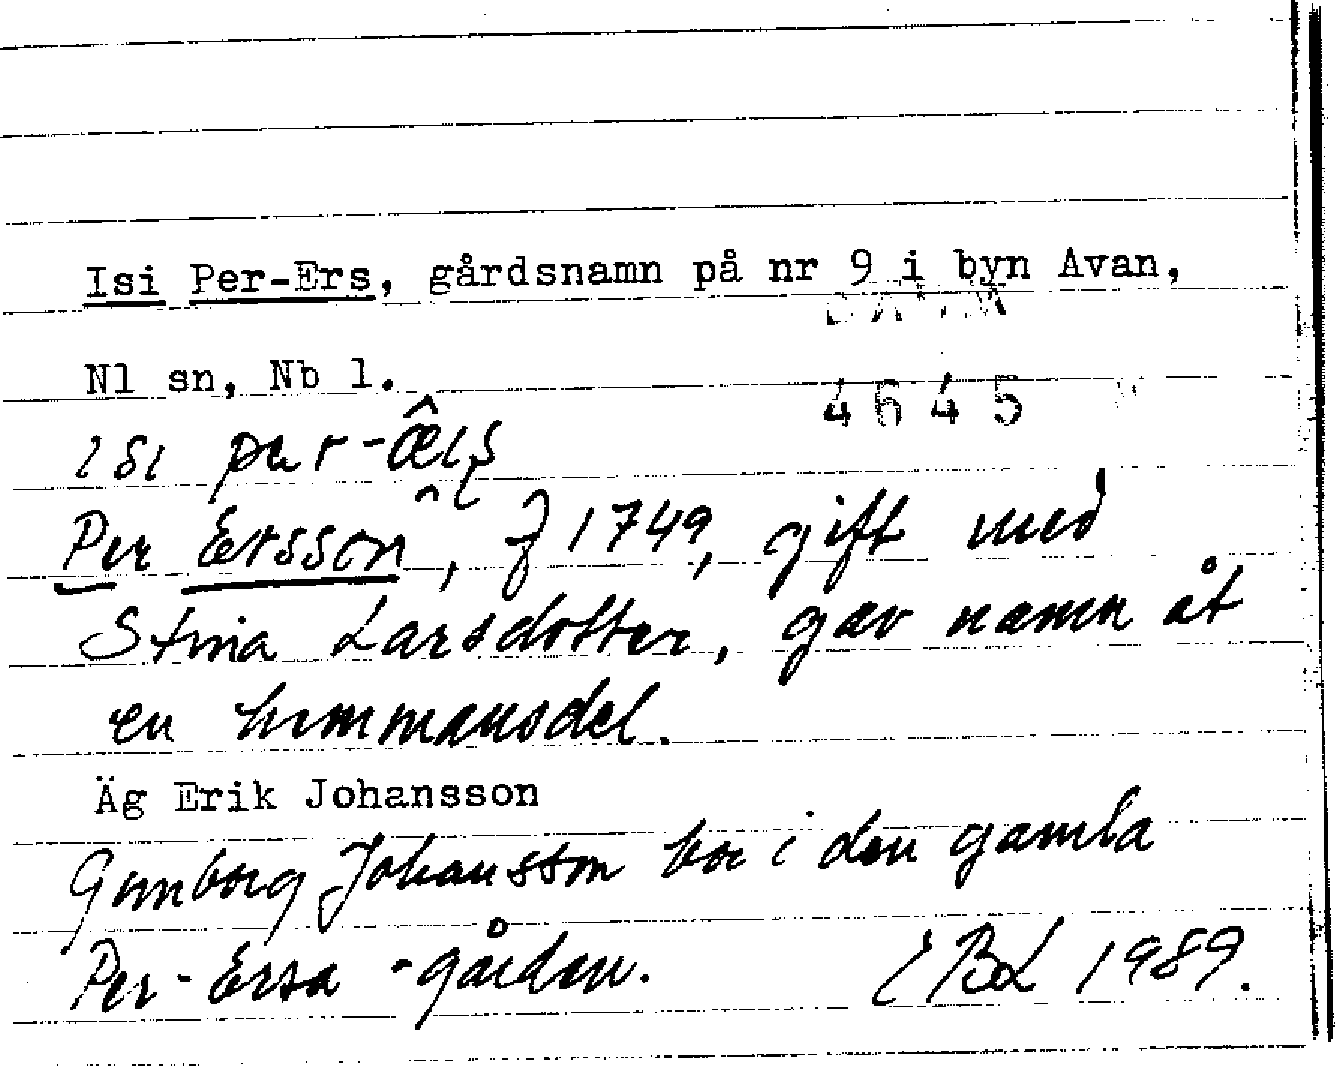 Isi Per-Ers, gårdsnamn på nr 9 i byn Avan,
Nl sn, Nb l.
4645
isi per-
Per Ersson, f 1749, gift med
Stina Larsdotter, gav namn åt
en hemmansdel.
Äg Erik Johansson
Gunborg Johansson bor i den gamla
Per-Ersa-gården. EBL 1989.